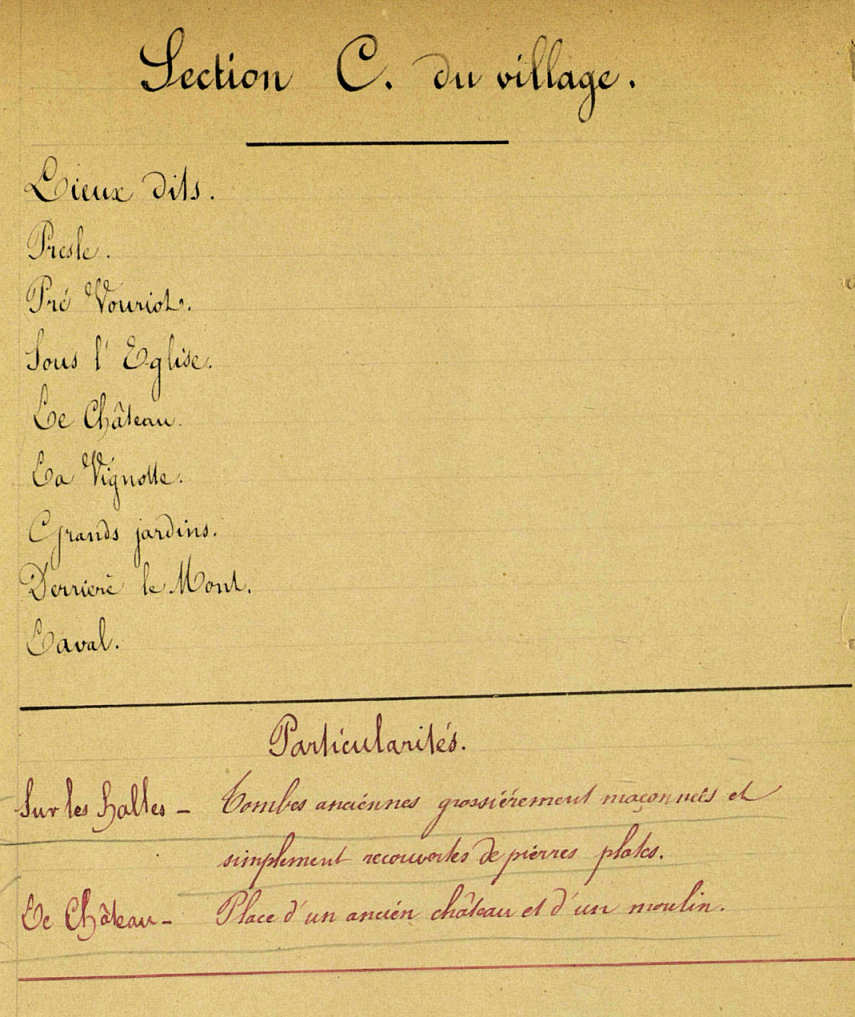 Section C. du village.
Lieux dits.
Presle.
Pré Vouriot.
Sous l'Eglise.
Le Château.
La Vignotte.
Grands jardins.
Derrière le Mont.
Laval.
Particularités.
Sur les Halles - Tombes anciennes grossièrement maçonnées et
simplement recouvertes de pierres plates.
Le Château - Place d'un ancien château et d'un moulin.